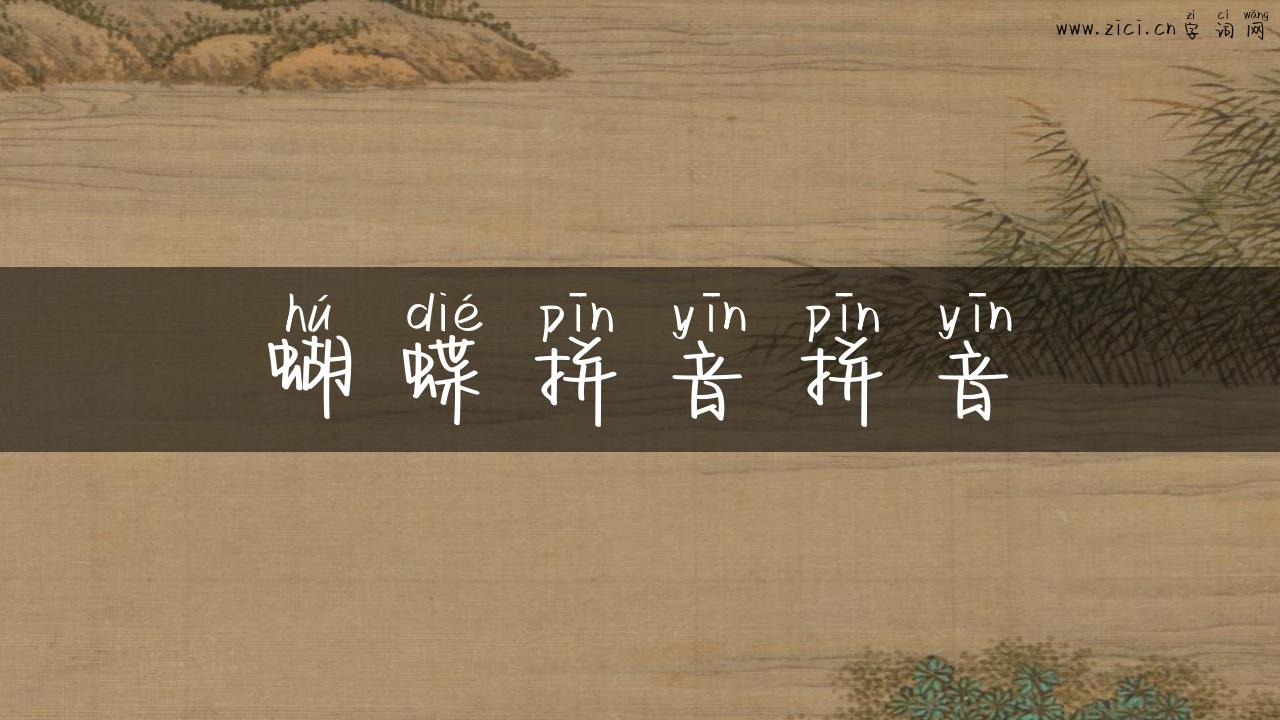 zì cí wǎng
www.zici.cn 字词网
hú dié pīn yīn pīn yīn
蝴蝶拼音拼音